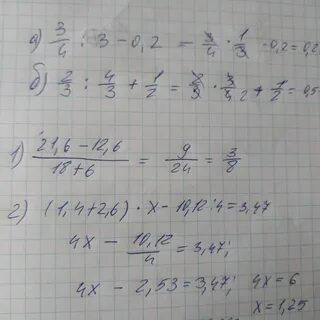 а) 3/4 : 3 − 0,2 = 3/4 · 1/3 − 0,2 = 0,2
б) 2/3 : 4/3 + 1/2 = 2/3 · 3/4 2 + 1/2 = 0,5
1) (21,6 − 12,6)/(18 + 6) = 9/24 = 3/8
2) (1,4 + 2,6) · x − 10,12 : 4 = 3,47
4x − 10,12/4 = 3,47;
4x − 2,53 = 3,47; 4x = 6
x = 1,25